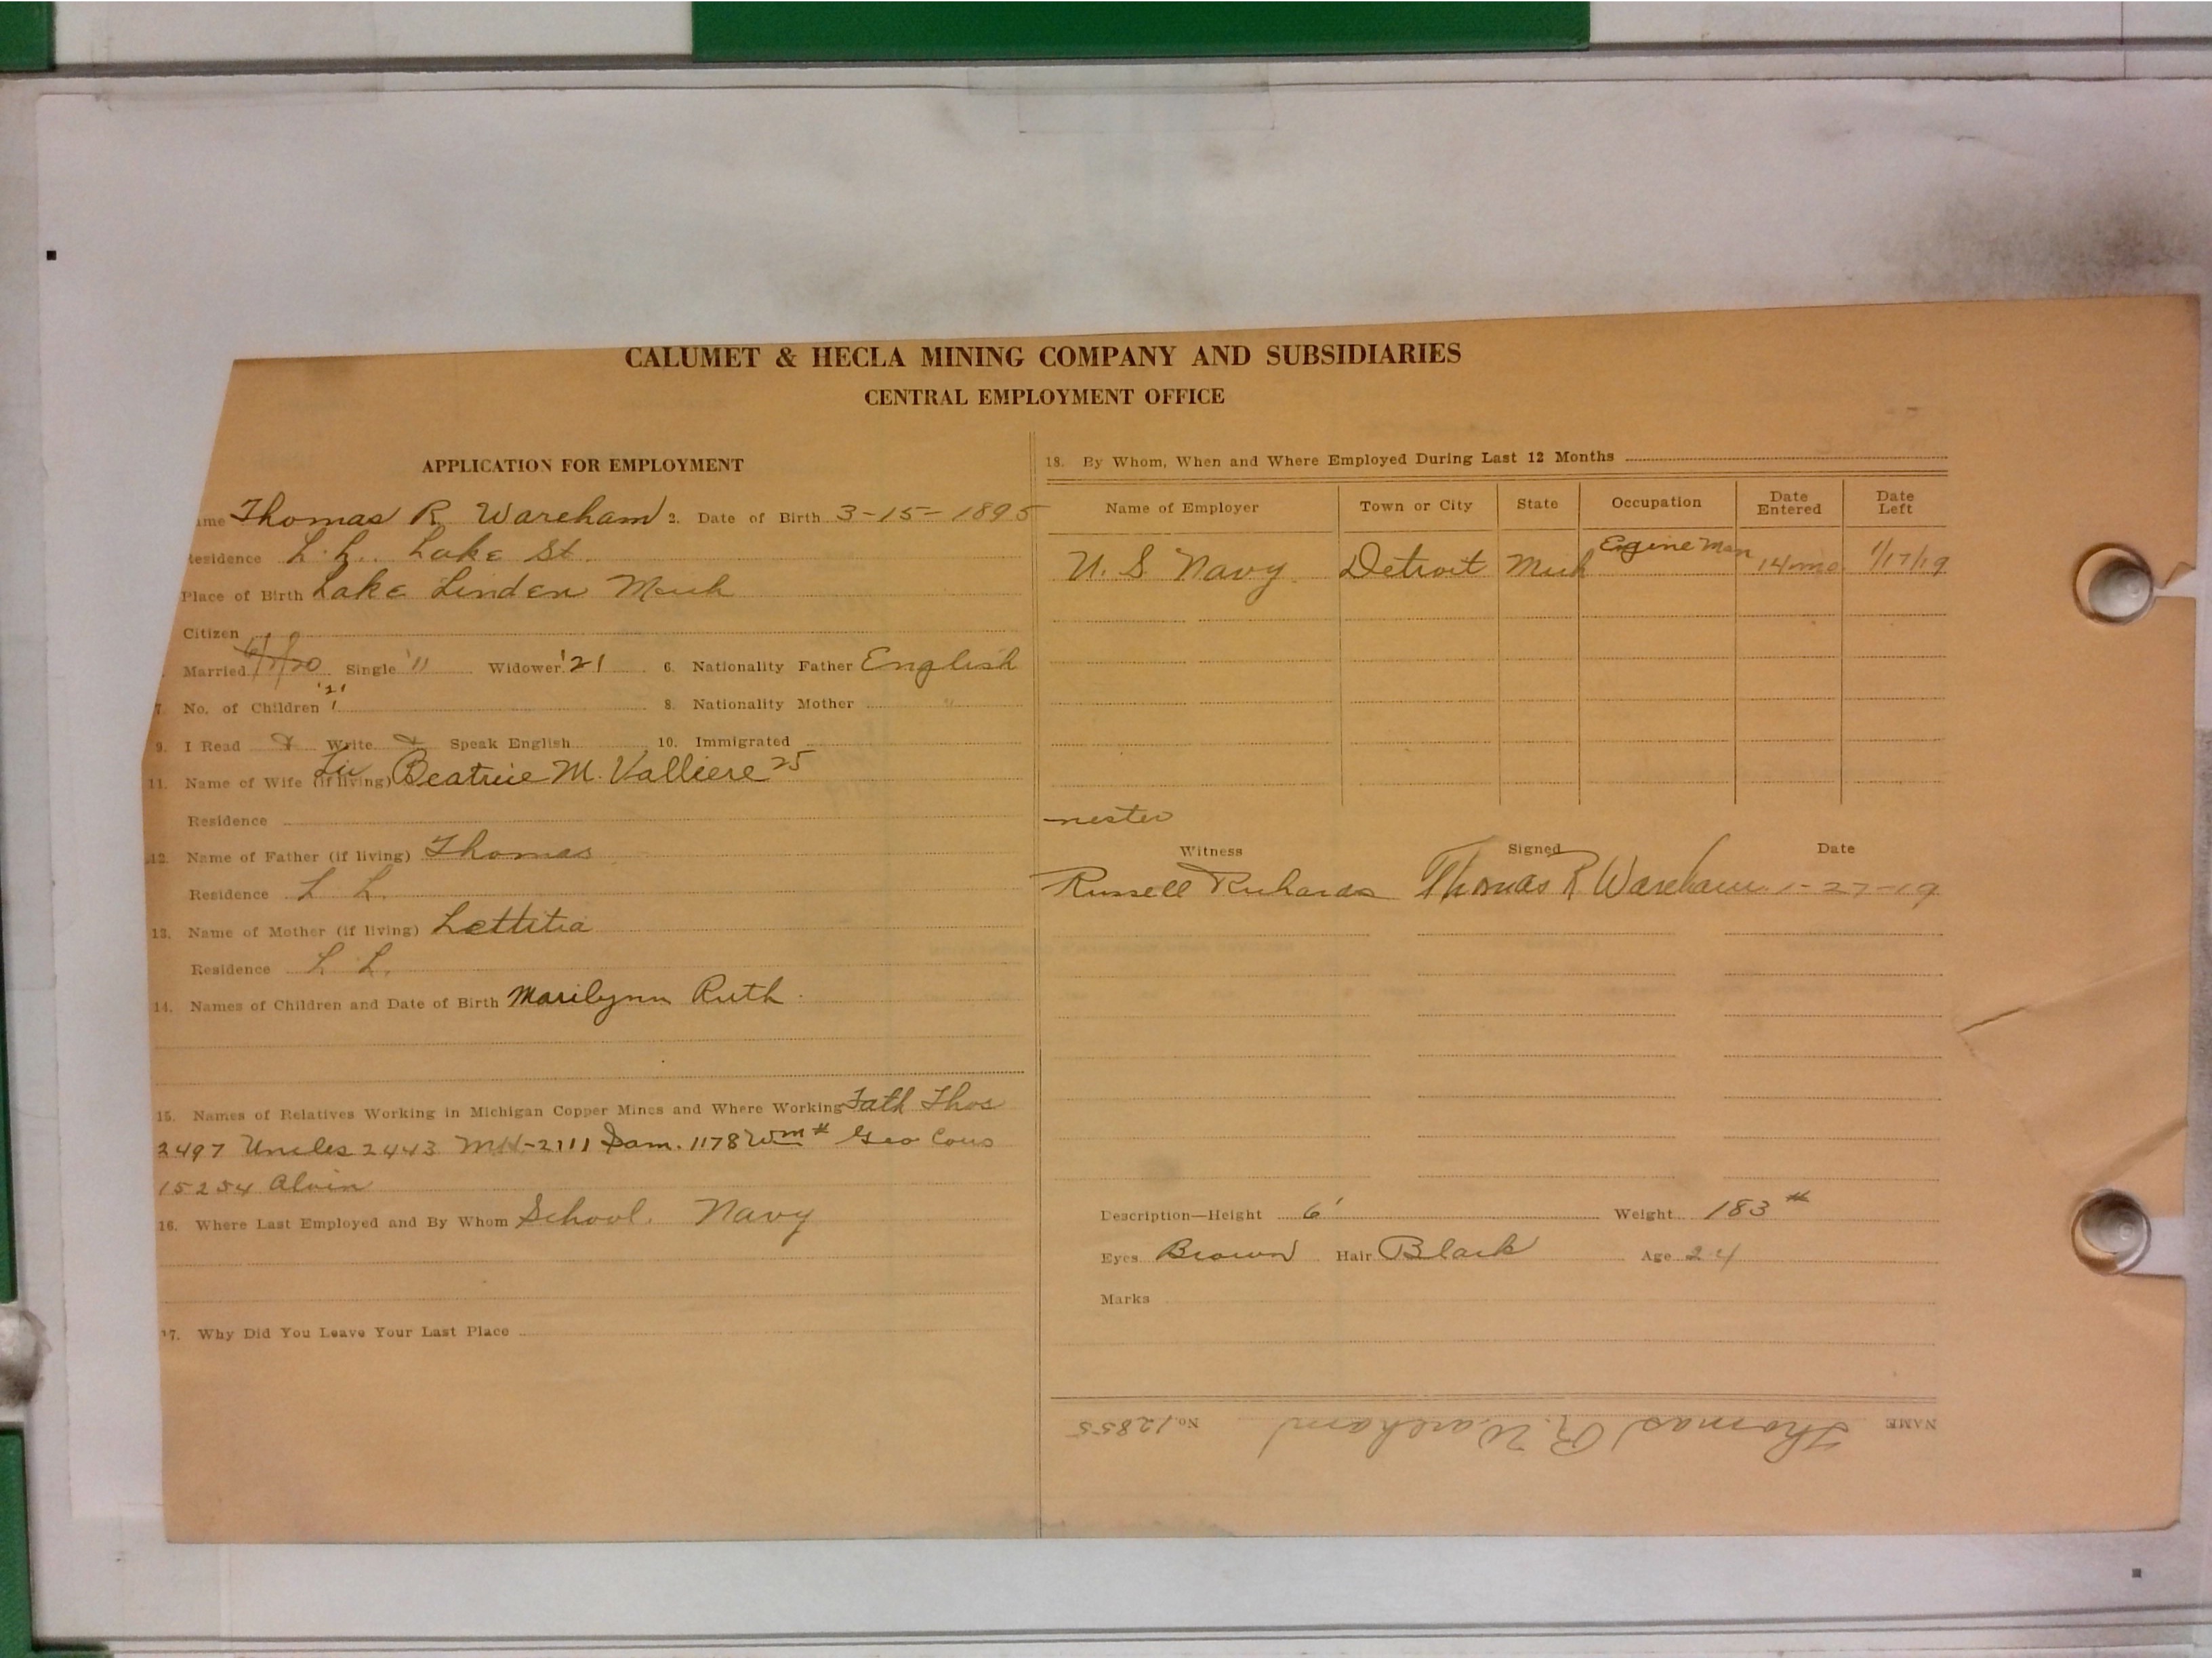 CALUMET & HECLA MINING COMPANY AND SUBSIDIARIES
CENTRAL EMPLOYMENT OFFICE
APPLICATION FOR EMPLOYMENT
ame Thomas R Wareham 2. Date of Birth 3-15-1895
Residence L. L. Lake St.
Place of Birth Lake Linden Mich
Citizen
Married 6/1/20 Single "11 Widower '21 6. Nationality Father English
7. No. of Children '21 1 8. Nationality Mother "
9. I Read Write Speak English 10. Immigrated
11. Name of Wife (if living) Beatrice M. Valliere 25
Residence
12. Name of Father (if living) Thomas
Residence L L.
13. Name of Mother (if living) Lettitia
Residence L L.
14. Names of Children and Date of Birth Marilynn Ruth
15. Names of Relatives Working in Michigan Copper Mines and Where Working Fath Thos
2497 Uncles 2443 MH-2111 Sam. 1178 Wm # Geo Cous
15254 Alvin
16. Where Last Employed and By Whom School. Navy
17. Why Did You Leave Your Last Place
18. By Whom, When and Where Employed During Last 12 Months
Name of Employer Town or City State Occupation Date Entered Date Left
U. S Navy Detroit Mich Engine Man 14 mo 1/17/19
Witness Signed Date
Russell Richards Thomas R Wareham 1-27-19
Description—Height 6' Weight 183 #
Eyes Brown Hair Black Age 24
Marks
NAME Thomas R. Wareham No. 12855